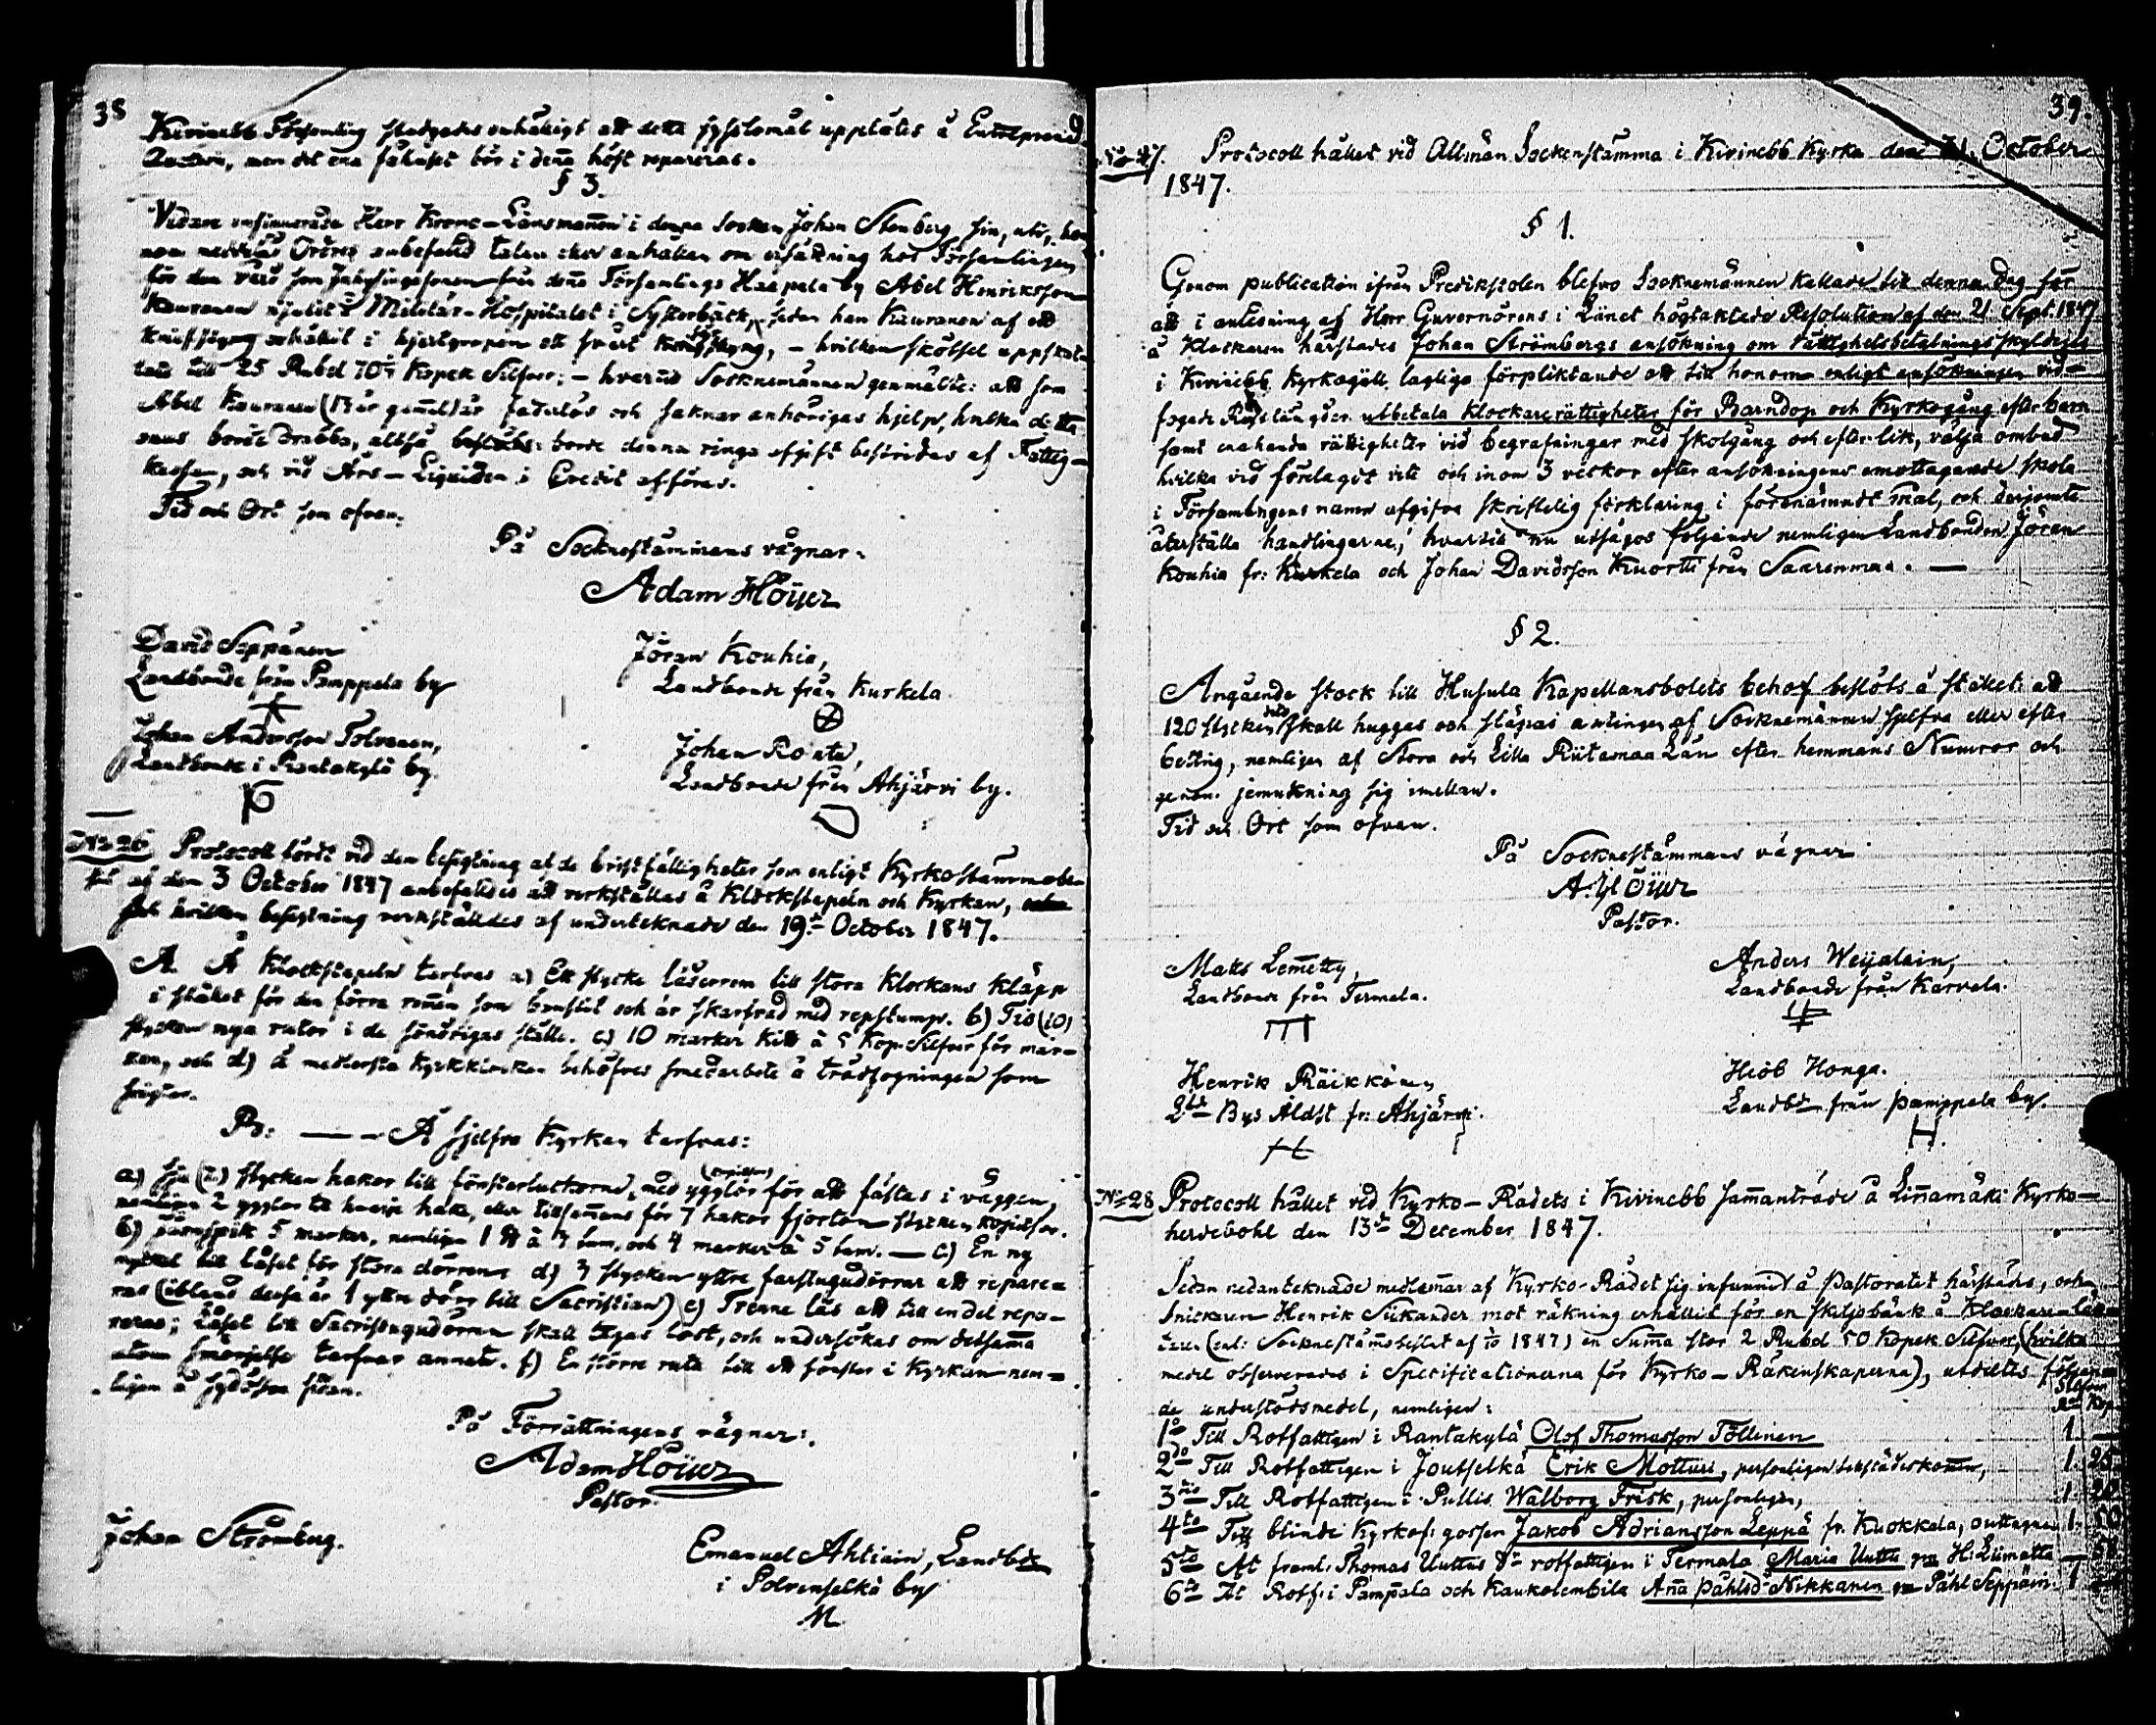 38
Kivinebb Församling stadgades enhälligt att detta hysslomål upplåtes å Entreprenad
Auction, men det ena fähuset bör i denna höst repareras.
§ 3.
Vidare insinuerade Herr Krono-Länsmannen i denna Socken Johan Stenberg sin,
Ordres anbefalld talan eller anhållan om ersättning hos Församlingen
för den vård som från denna Församlings Haapala by Abel Henriksson
Kauranen njutit å Militär-Hospitalet i Systerbäck, sedan han Kauranen af ett
erhållit i hjertgropen ett svårt — hvilken skötsel uppskat-
tats till 25 Rubel 70 Kopek Silfver; — hvarvid Socknemännen genmälte: att som
Abel Kauranen (13 år gammel) är faderlös och saknar anhörigas hjelp, hvilka detta
borde drabba, alltså borde denna ringa afgift bestridas af Fattig-
kassan, och vid Års-Liquiden i Credit afföras.
Tid och Ort som ofvan.
På Socknestämmans vägnar:
Adam Höijer
David Seppänen
Landbonde från Pamppala by
Jöran Kouhia,
Landbonde från Kurkela
Johan Andersson Tolvanen,
Landbonde i Rantakylä by.
Johan Ronta,
Landbonde från Ahjärvi by.
No 26 Protocoll fördt vid den besigtning af de bristfälligheter som enligt Kyrkostämmobe-
slut af den 3 October 1847 anbefaldes att verkställas å Klockstapeln och Kyrkan,
hvilken besigtning verkställdes af undertecknade den 19de October 1847.
A. Å Klockstapeln tarfvas a) Ett stycke läderrem till stora Klockans Kläpp
i stället för den förra remmen som är skarfvad med repstump. b) Tio (10)
stycken nya rutor i de söndrigas ställe. c) 10 marker Kitt à 5 Kop. Silfver för mar-
ken, och d) å medlersta Kyrkklockan behöfves smedarbete å trädfogningen som
B: — Å sjelfva Kyrkan tarfvas:
a) Sju (7) stycken hakor till fönsterluckorne, med yglor för att fästas i väggen,
nemligen 2 yglor till hvarje hake, eller tillsammans för 7 hakor fjorton stycken
b) järnspik 5 marker, nemligen 1 ℔ à 3 tum, och 4 marker à 5 tum. — c) En ny
nyckel till låset för stora dörren d) 3 stycken yttre farstugudörrar att repare-
ras (ibland dessa är 1 yttre dörr till Sacristian) e) Trenne lås att till en del repa-
reras; Låset till Sacristugudörren skall tagas löst, och undersökas om detsamma
utom smörjelse tarfvar annat. f) En större ruta till ett fönster i Kyrkan nem-
ligen å sydöstra sidan.
På Förrättningens vägner:
Adam Höijer
Pastor.
Johan Strömberg.
Emanuel Ahtiain, Landbde
i Polvenselkä by
M
39.
No 27. Protocoll hållet vid Allmän Sockenstämma i Kivinebb Kyrka den 31 October
1847.
§ 1.
Genom publication ifrån Predikstolen blefvo Socknemännen Kallade till denna dag för
att i anledning af Herr Guvernörens i Länet högtaktade Resolution af den 21 Sept. 1847
å Klockaren härstädes Johan Strömbergs ansökning om rättighetsbetalningsskyldiges
i Kivinebb Kyrkogäll lagliga förpliktande att till honom enligt ansökningen vid-
fogade utbetala Klockarerättigheter för Barndop och Kyrkogång efter barn
samt enahanda rättigheter vid begrafningar med skolgång och efter lik, välja ombud
hvilka vid förelagdt vite och inom 3 veckor efter ansökningens emottagande skola
i Församlingens namn afgifva skriftelig förklaring i förenämndt mål, och derjemte
återställa handlingarne; hvartill nu utsågos följande nemligen Landbonden Jöran
Kouhia fr: Kurkela och Johan Davidsson Kuortti från Saarenmaa. —
§ 2.
Angående stock till Husula Kapellansbolets behof beslöts å stället: att
120 stycken skall huggas och släpas antingen af Socknemännen sjelfva eller efter
beting, nemligen af Stora och Lilla Riitamaa Län efter hemmans Numror och
genom jemnkning sig imellan.
Tid och Ort som ofvan.
På Socknestämmans vägner
A. Höijer
Pastor.
Matts Lemetty,
Landbonde från Termola.
Anders Weijalain,
Landbonde från Karvala.
Henrik Räikköin,
Bys Äldst fr: Ahjärvi.
Hiob Honga.
Landbde från Pamppala by
H.
No 28 Protocoll hållet vid Kyrko-Rådets i Kivinebb sammanträde å Linnamäki Kyrko-
herdebohl den 13de December 1847.
Sedan nedanteknade medlemmar af Kyrko-Rådet sig infunnit å Pastoratet härstädes, och
Snickaren Henrik Siikander mot räkning erhållit för en å Klockare-
(enl: Socknestämobeslut af 1847) en Summa stor 2 Rubel 50 Kopek Silfver, (hvilka
medel observerades i Specificationerna för Kyrko-Räkenskaperna), utdeltes följan-
de understödsmedel, nemligen:
Silfver
Rub Kop
1o Till Rotfattigen i Rantakylä Olof Thomasson Pöllinen 1. —
2do Till Rotfattigen i Joutselkä Erik Motturi, personligen tillstädeskommen, 1. 25
3tio Till Rotfattigen i Pullis Walborg Frisk, personligen, 1. 20
4to Till blinde Kyrkof: gossen Jakob Adriansson Leppä fr. Kuokkala, 1. 50
5to At framl: Thomas Uuttus rotfattigen i Termola Maria Uuttu H: Liimatta — 50
6to At Rotf: i Pampala och Kaukolembile Anna Påhlsdr Nikkanen Påhl Seppäin. 1 —